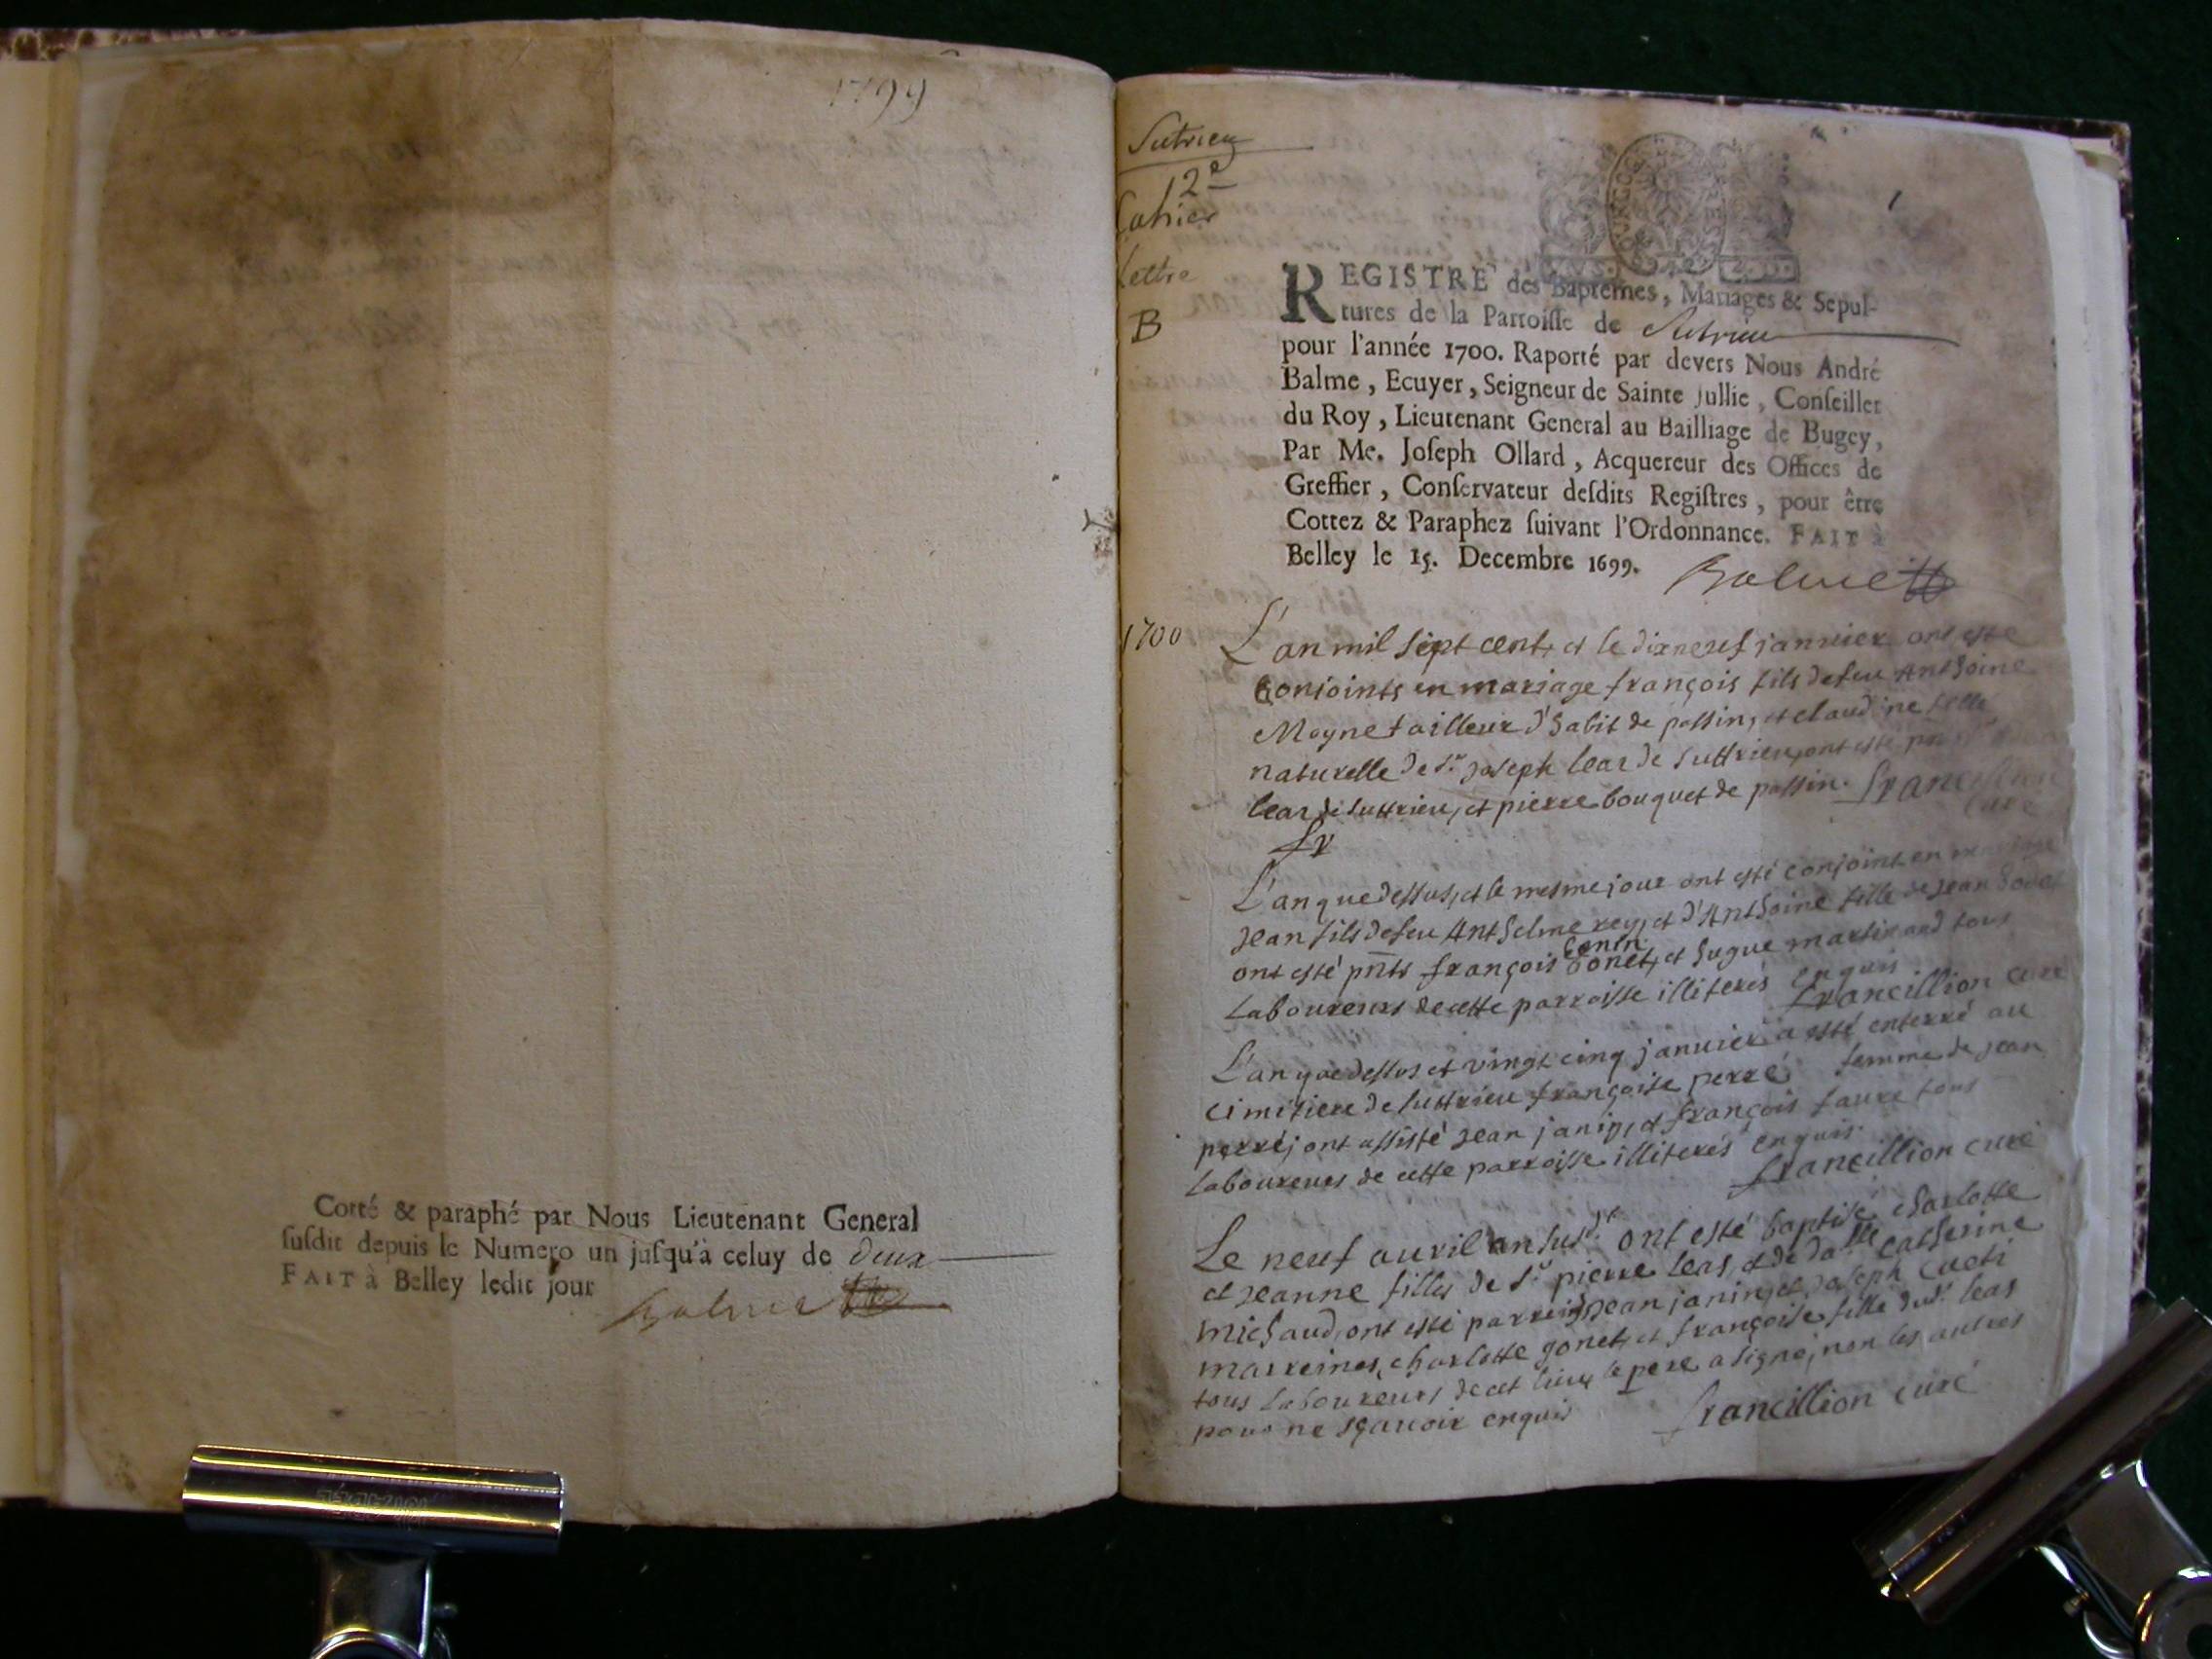 1799
Cotté & paraphé par Nous Lieutenant General
susdit depuis le Numero un jusqu'à celuy de deux
FAIT à Belley ledit jour
Balme
Sutrieu
12e
Cahier
Lettre
B
1
REGISTRE des Baptêmes, Mariages & Sepul-
tures de la Parroisse de Sutrieu
pour l'année 1700. Raporté par devers Nous André
Balme, Ecuyer, Seigneur de Sainte Jullie, Conseiller
du Roy, Lieutenant General au Bailliage de Bugey,
Par Me. Joseph Ollard, Acquereur des Offices de
Greffier, Conservateur desdits Registres, pour être
Cottez & Paraphez suivant l'Ordonnance. FAIT à
Belley le 15. Decembre 1699.
Balme
1700
L'an mil sept cent, et le dixneuf januier ont esté
conjoints en mariage françois fils de feu Anthoine
Moyne tailleur d'habit de passin, et claudine fille
naturelle de Sr. joseph lear de suttrieu, ont esté
lear de suttrieu, et pierre bouquet de passin. francillion
curé
fr
L'an que dessus, et le mesme jour ont esté conjoint en mariage
jean fils de feu Anthelme rey, et d'Anthoine fille de jean
ont esté pnts françois bonet, et hugue martinand tous
Laboureurs de cette parroisse illiterés enquis
francillion curé
L'an que dessus et vingt cinq januier a esté enterré au
cimitiere de suttrieu françoise perré femme de jean
perré; ont assisté jean janin, et françois faure tous
Laboureurs de cette parroisse illiterés enquis.
francillion curé
Le neuf auril an susd. ont esté baptisé charlotte
et jeanne filles de Sr. pierre leas, et de dalle catherine
michaud, ont esté parreins jean janin, et joseph
marreines, charlotte gonet, et françoise fille dud. leas
tous Laboureurs de cet lieu, le pere a signé, non les autres
pour ne sçauoir enquis
francillion curé